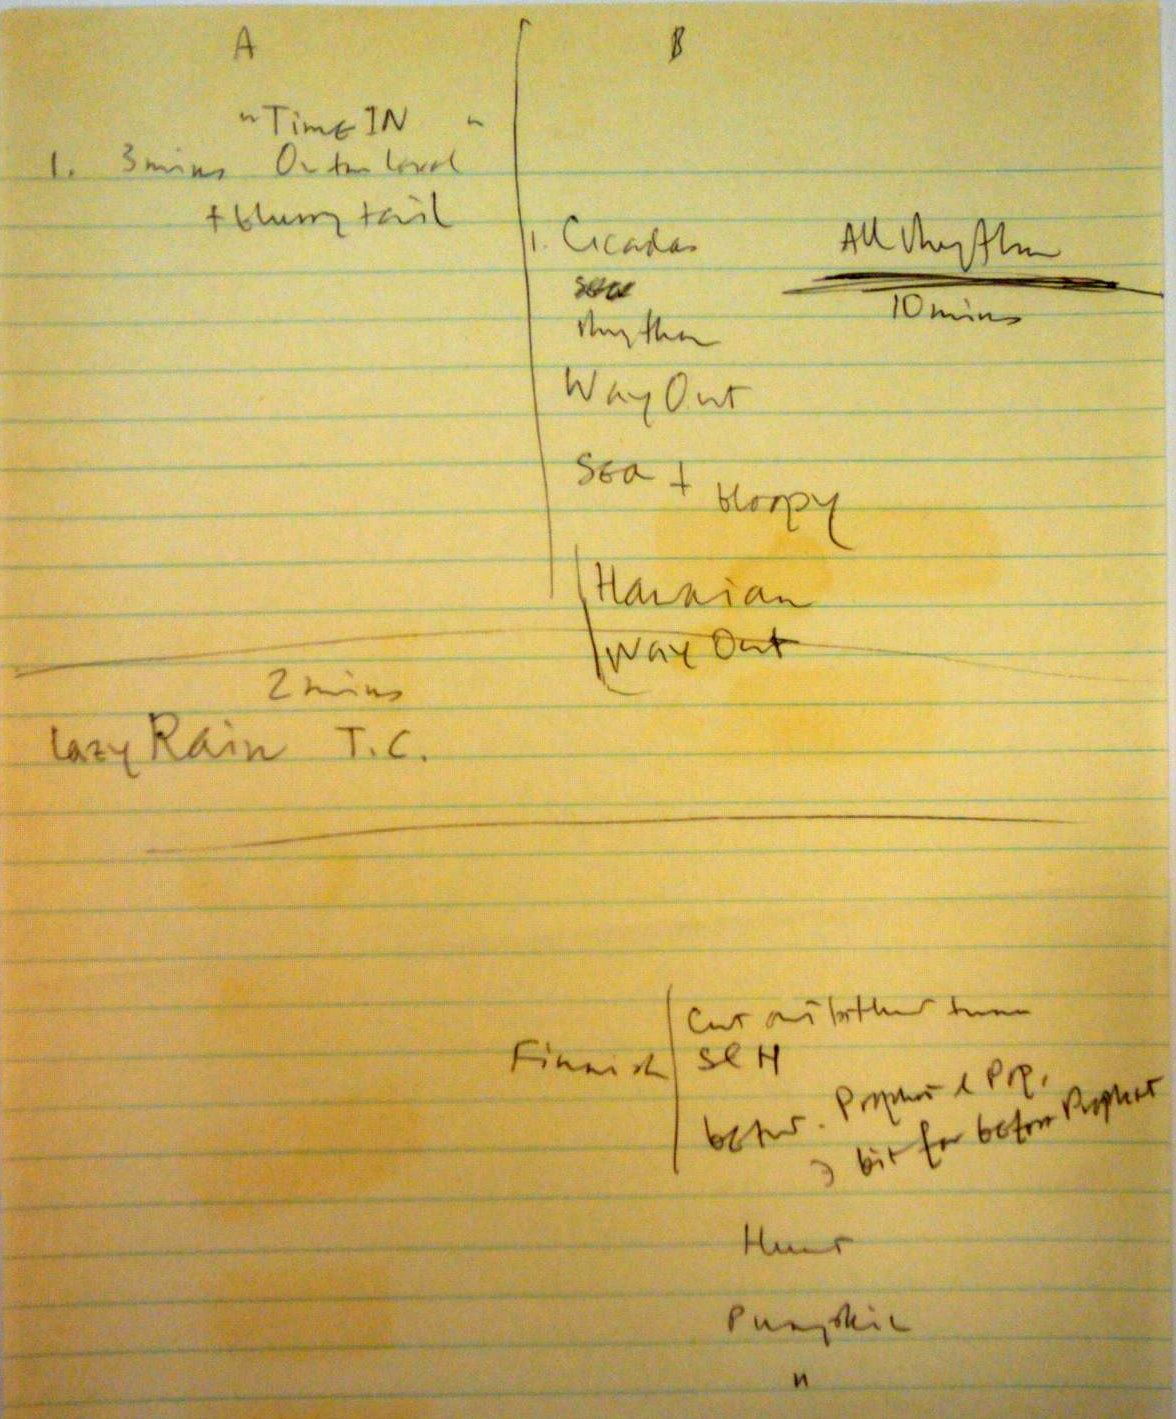 A
"Time IN "
1. 3 mins Outer Level
+ blurry tail
2 mins
Lazy Rain T.C.
B
1. Cicadas
sea
rhythm
All rhythm
10 mins
Way Out
Sea + bloopy
Hawaian
Way Out
Finnish
Cut out
S&H
before. Prophet & Pop.
bit for before Prophet
Hunt
Pumpkin
"